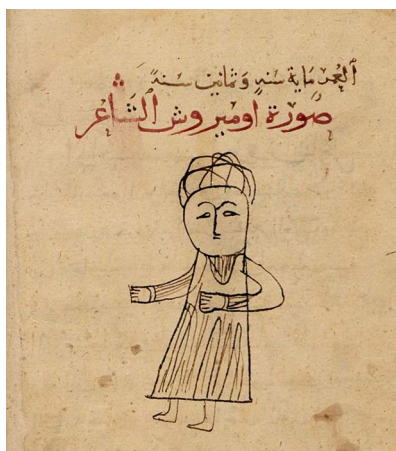 العمر ماية سنةٍ وثمانين سنةً
صورة اوميروش الشاعر